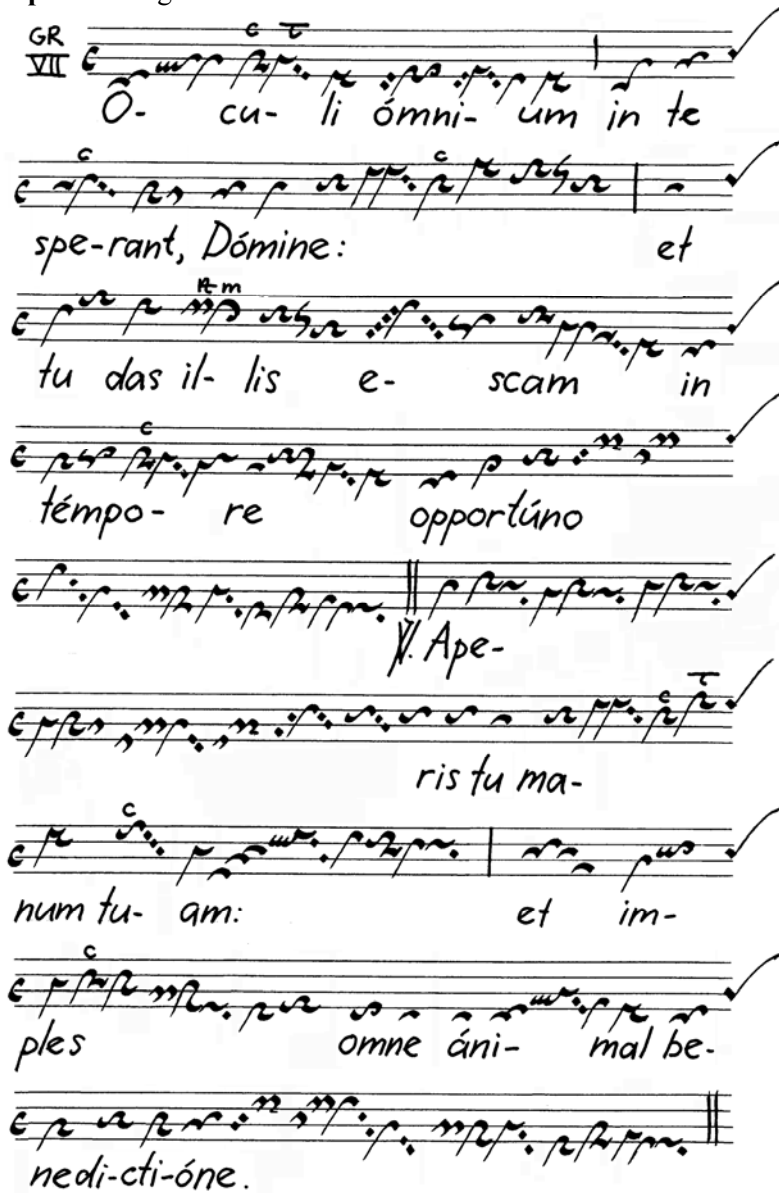 GR
VII
Ó- cu- li ómni- um in te
spe-rant, Dómine: et
tu das il- lis e- scam in
témpo- re opportúno
℣. Ape-
ris tu ma-
num tu- am: et im-
ples omne áni- mal be-
nedi-cti-óne.